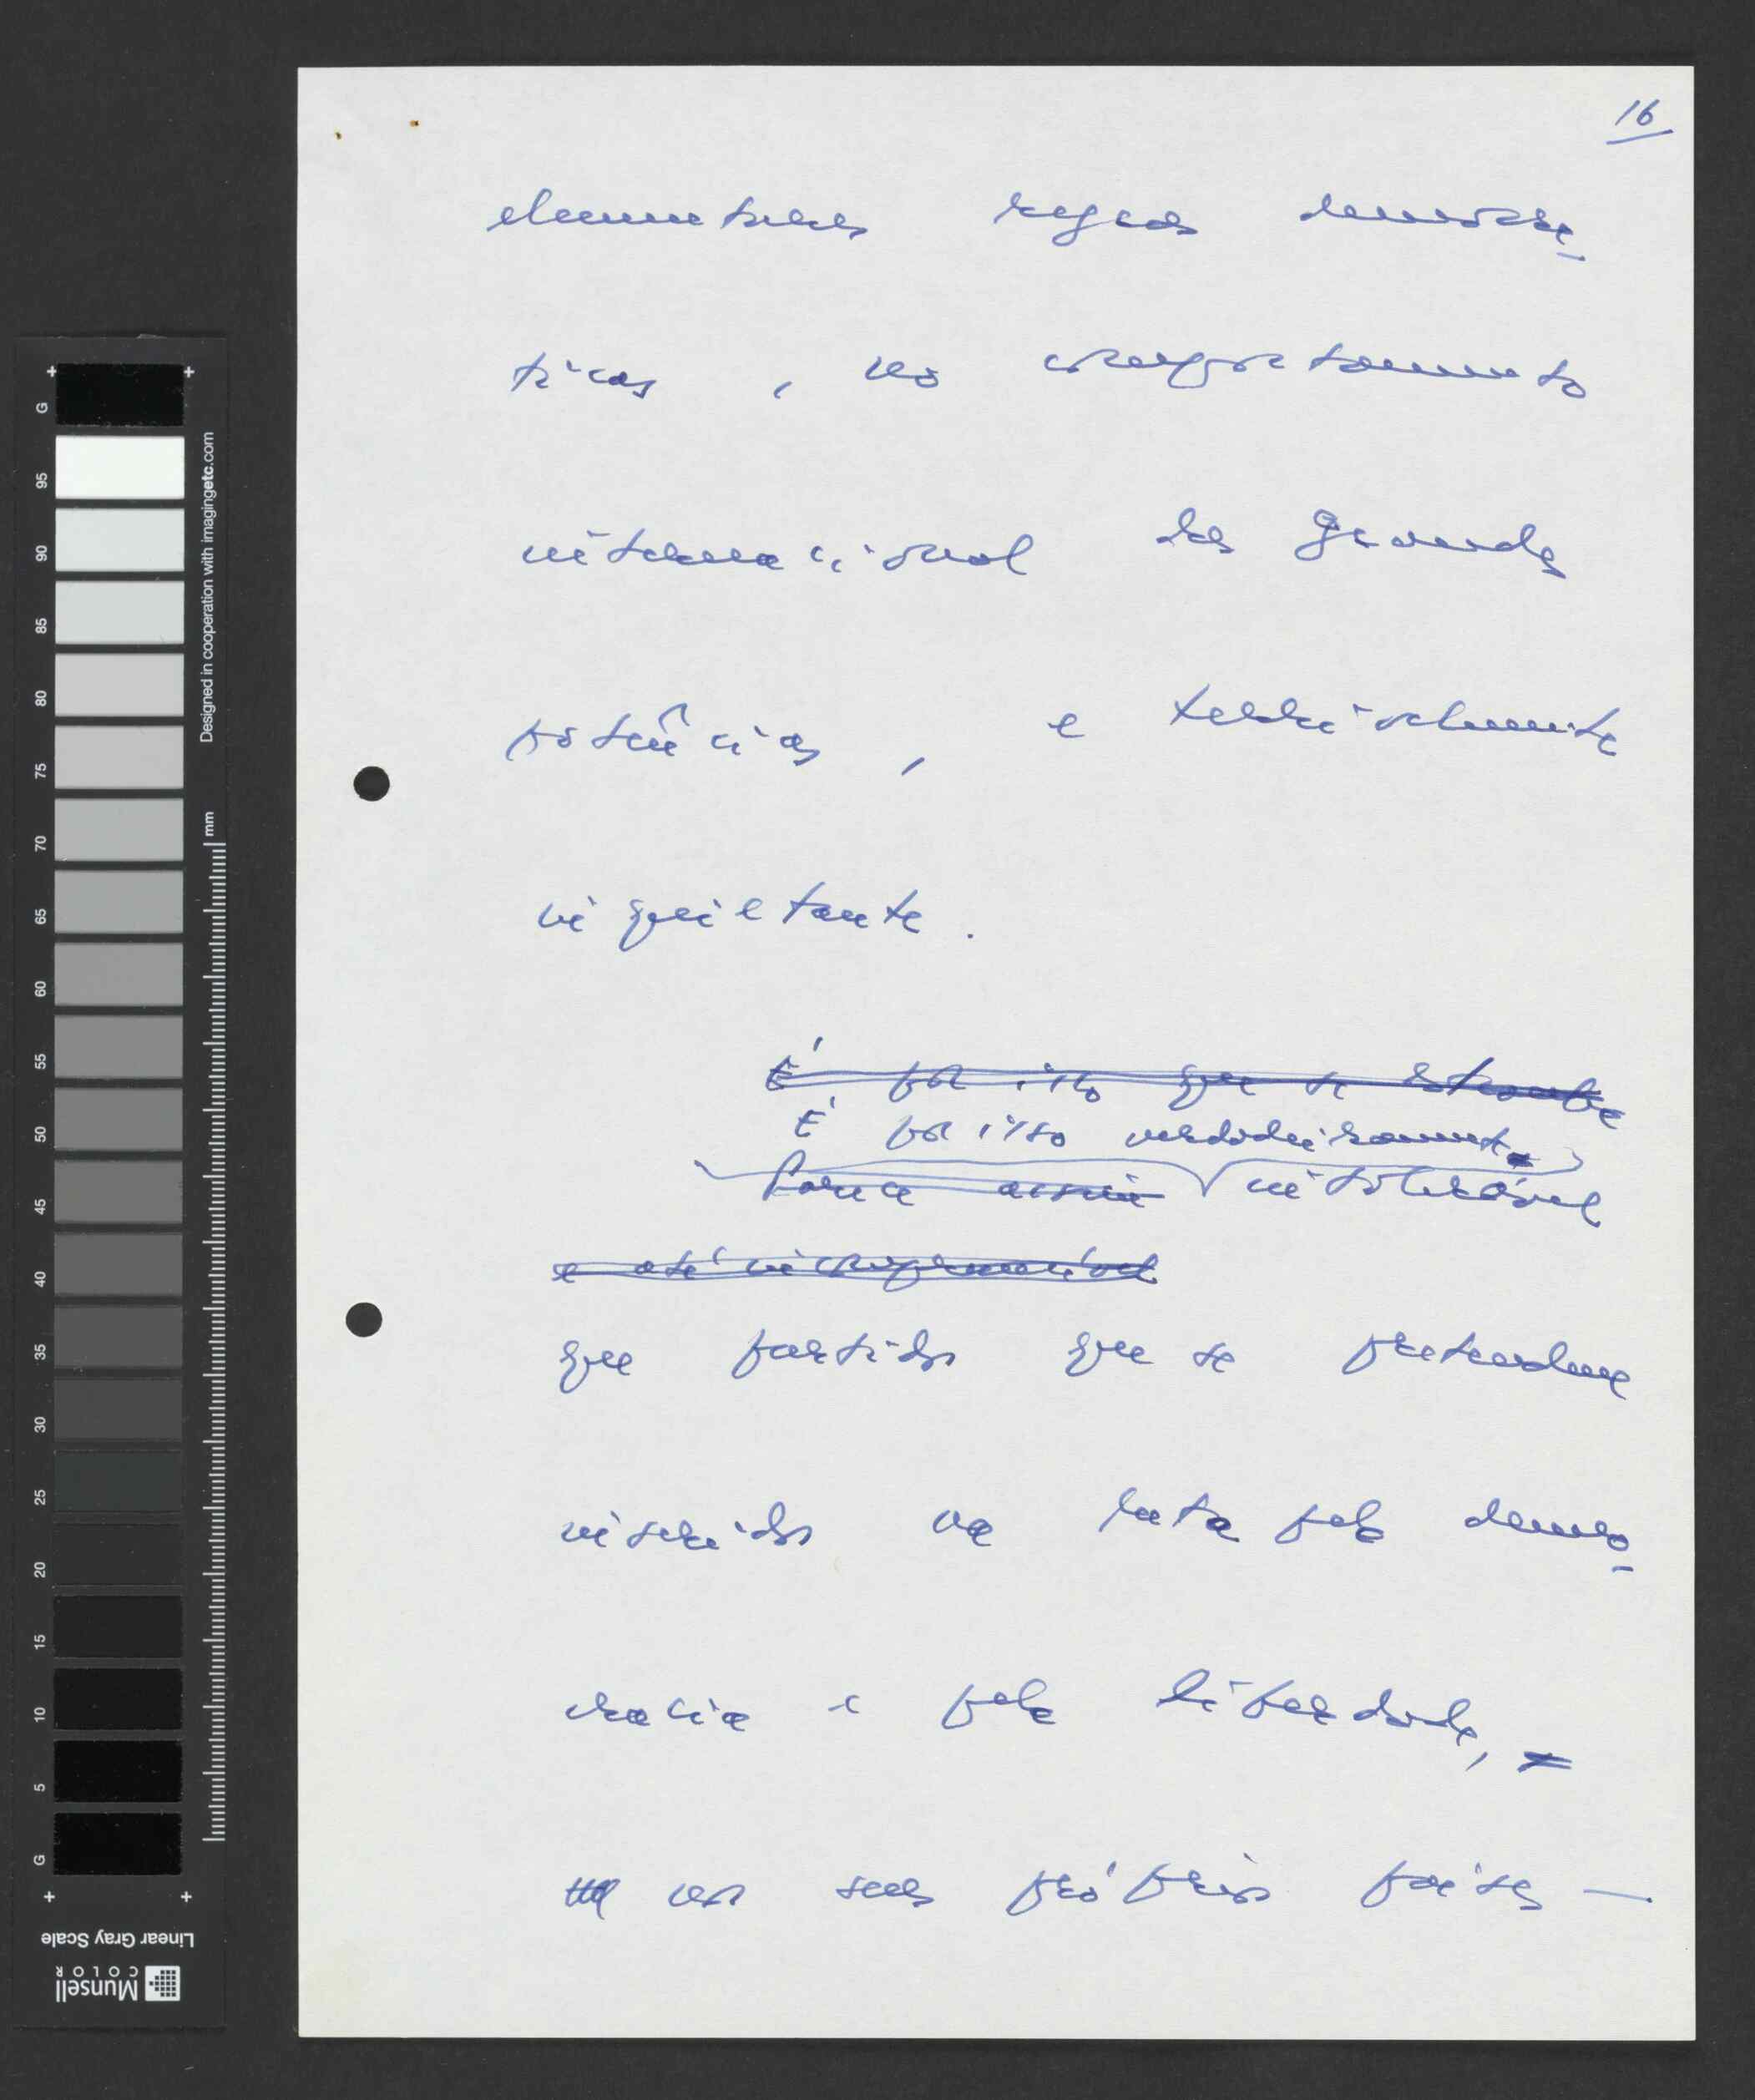 16
elementares regras democrá
ticas, no comportamento
internacional das grandes
potências, e terrivelmente
inquietante.
É por isso que se estranha
É por isso verdadeiramente
Parece assim intolerável
e até incompreensível
que partidos que se pretendem
inseridos na luta pela demo
cracia e pela liberdade,
nos seus próprios países —
G
95
90
85
80
75
70
65
60
55
50
45
40
35
30
25
20
15
10
5
G
Designed in cooperation with imagingetc.com
mm
Linear Gray Scale
Munsell
COLOR